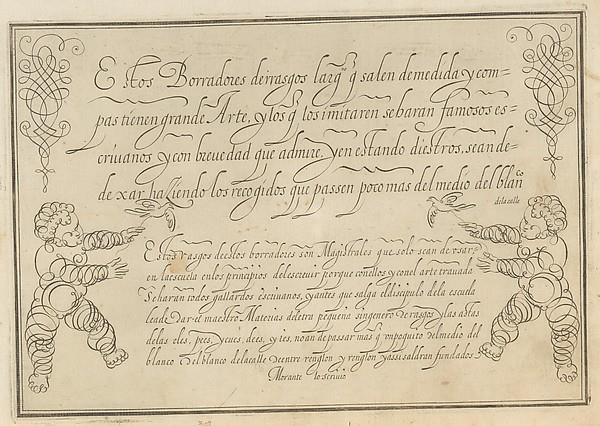 Estos Borradores derrasgos larqͦˢ q̃ salen demedida y com-
pas tienen grande Arte, y los q̃ los imitaren se haran famosos es-
criuanos y con breuedad que admire. y en estando diestros, se an de-
dexar haziendo los recogidos que passen poco mas del medio del blanͨͦ
delacalle
Estos rasgos deestos borradores son Magistrales que solo sean de vsar
en la escuela en los principios del escreuir porque con ellos y con el arte trauada
Se haran todos gallardos escriuanos, y antes que salga el discipulo de la escuela
leade dar el maestro Materias deletra pequeña sin genero de rasgos y las astas
de las eles, pees, y cues, dees, y tes, no an de passar mas q̃ vn poquito del medio del
blanco del blanco delacalle de entre renglon y renglon y assi saldran fundados
Morante lo scriuio